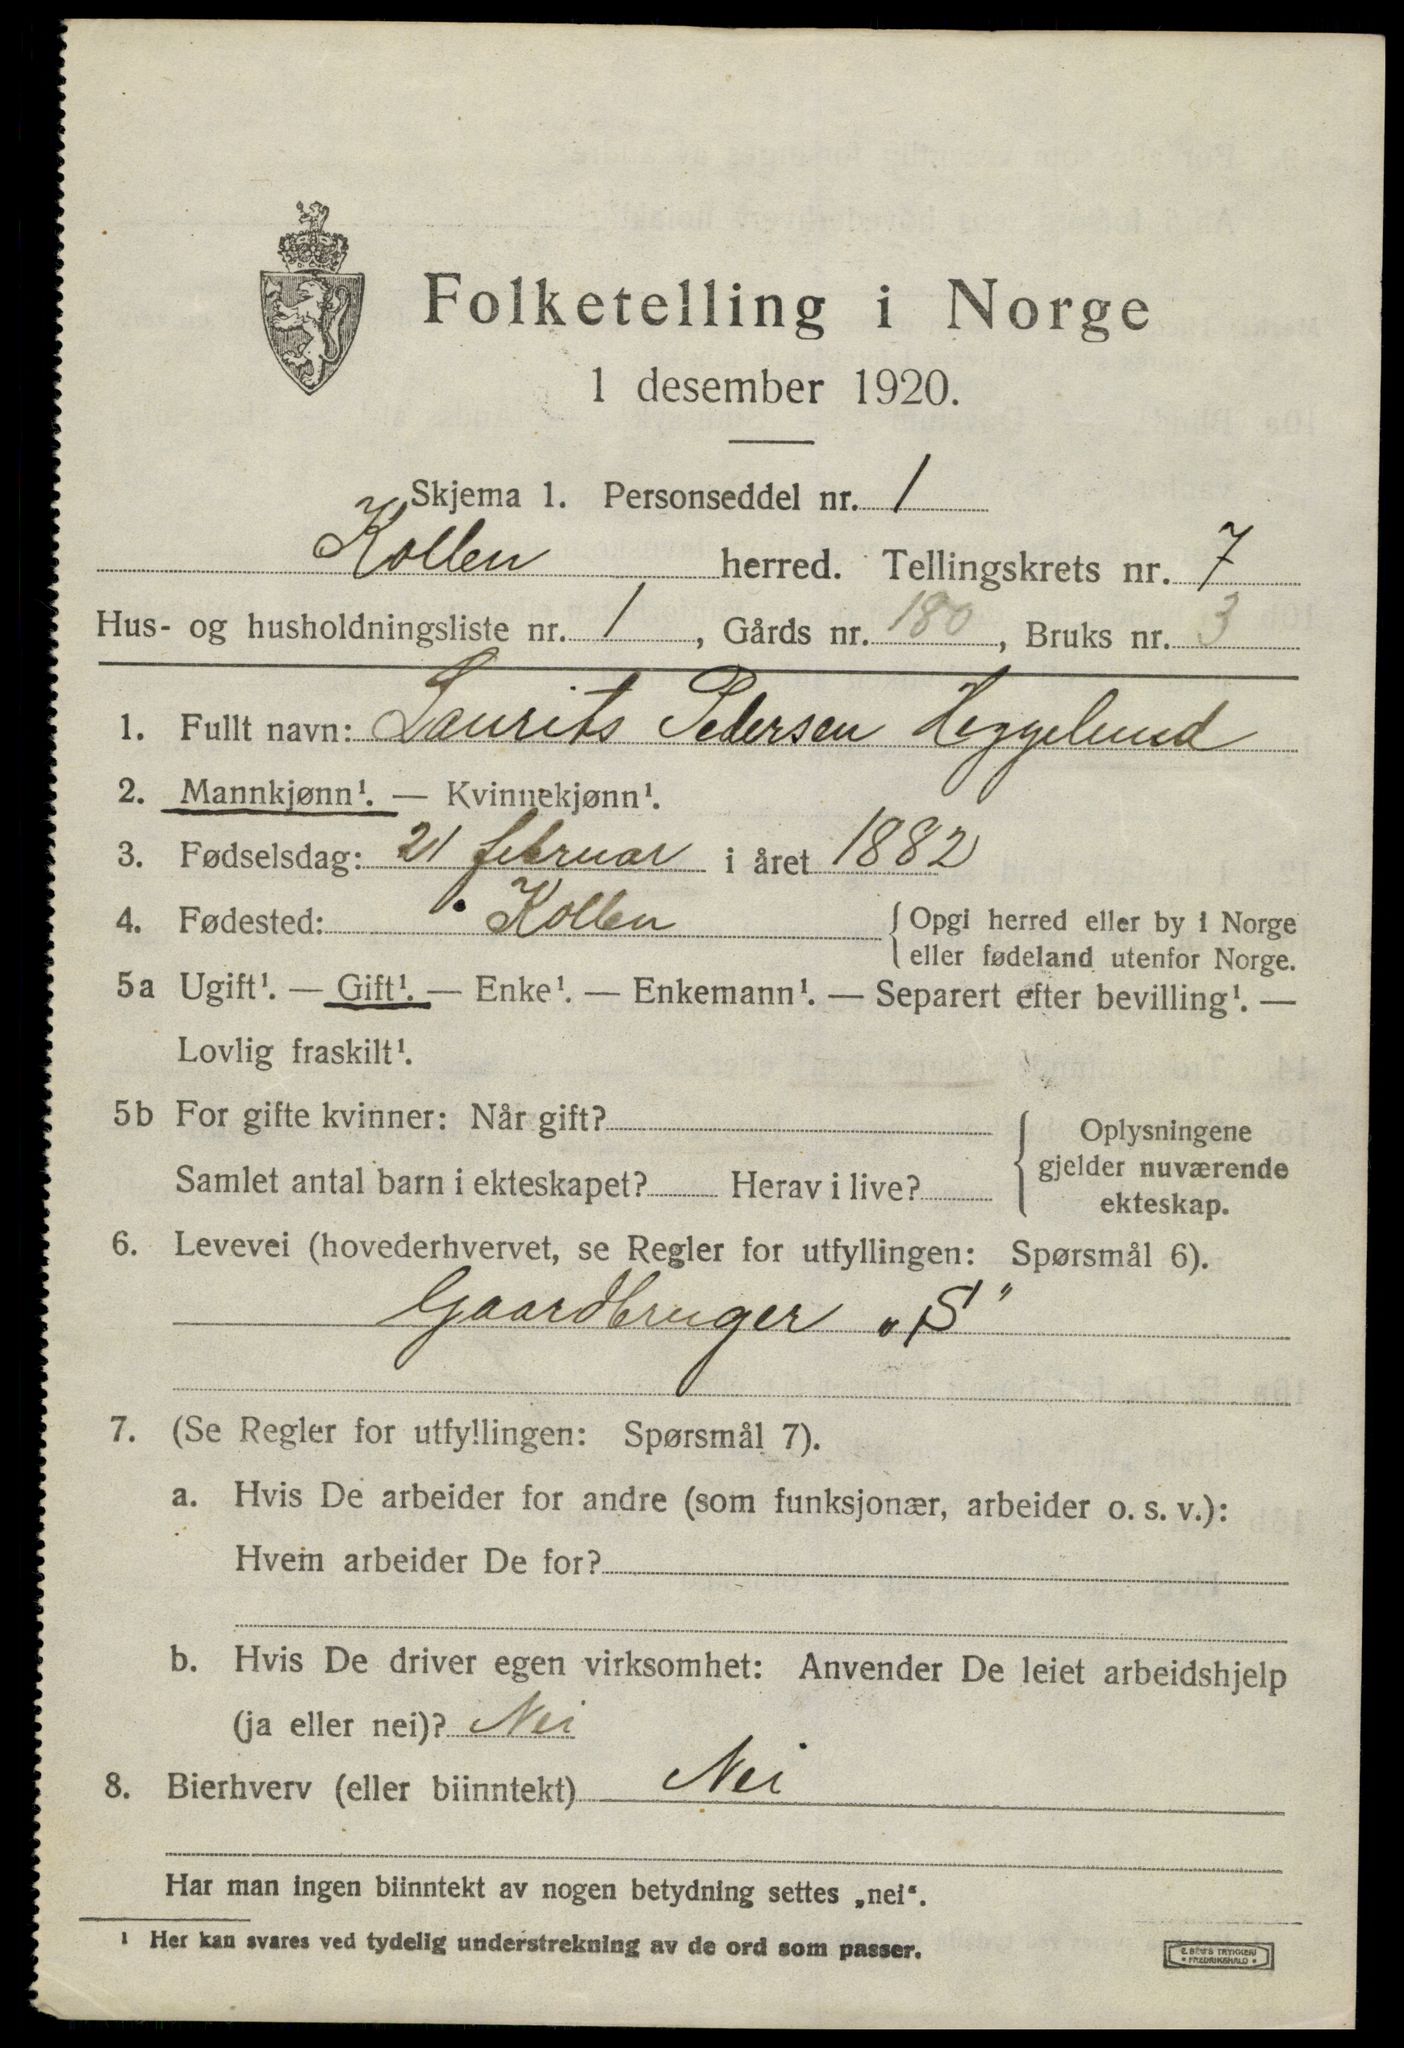 Folketelling i Norge
1 desember 1920.
Skjema 1. Personseddel nr. 1
Kollen herred. Tellingskrets nr. 7
Hus- og husholdningsliste nr. 1, Gårds nr. 180, Bruks nr. 3
1. Fullt navn: Laurits Pedersen Heggelund
2. Mannkjønn¹. — Kvinnekjønn¹.
3. Fødselsdag: 21 februar i året 1882
4. Fødested: Kollen { Opgi herred eller by i Norge
eller fødeland utenfor Norge.
5a Ugift¹. — Gift¹. — Enke¹. — Enkemann¹. — Separert efter bevilling¹. —
Lovlig fraskilt¹.
5b For gifte kvinner: Når gift?
Samlet antal barn i ekteskapet? Herav i live?
Oplysningene
gjelder nuværende
ekteskap.
6. Levevei (hovederhvervet, se Regler for utfyllingen: Spørsmål 6).
Gaardbruger „S"
7. (Se Regler for utfyllingen: Spørsmål 7).
a. Hvis De arbeider for andre (som funksjonær, arbeider o. s. v.):
Hvem arbeider De for?
b. Hvis De driver egen virksomhet: Anvender De leiet arbeidshjelp
(ja eller nei)? Nei
8. Bierhverv (eller biinntekt) Nei
Har man ingen biinntekt av nogen betydning settes „nei“.
¹ Her kan svares ved tydelig understrekning av de ord som passer.
E. BERGS TRYKKERI
* FREDRIKSHALD *